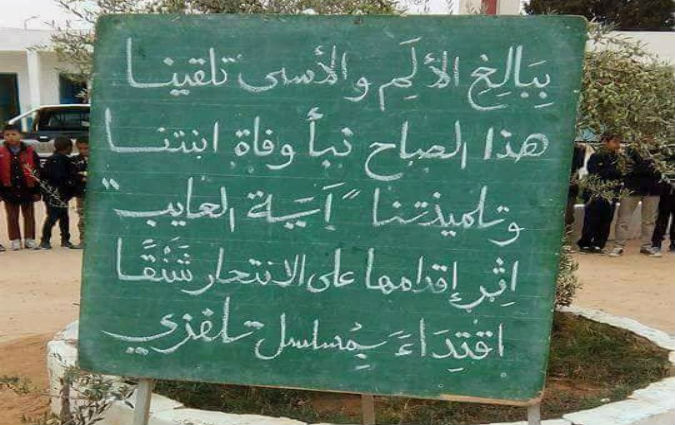 بِبَالِغِ الأَلَمِ والأسى تلقينا
هذا الصباح نبأ وفاة ابنتنا
وتلميذتنا "آية العايب"
إثر إقدامها على الانتحار شَنْقًا
اقتِدَاءَ بِمسلسل تلفزي